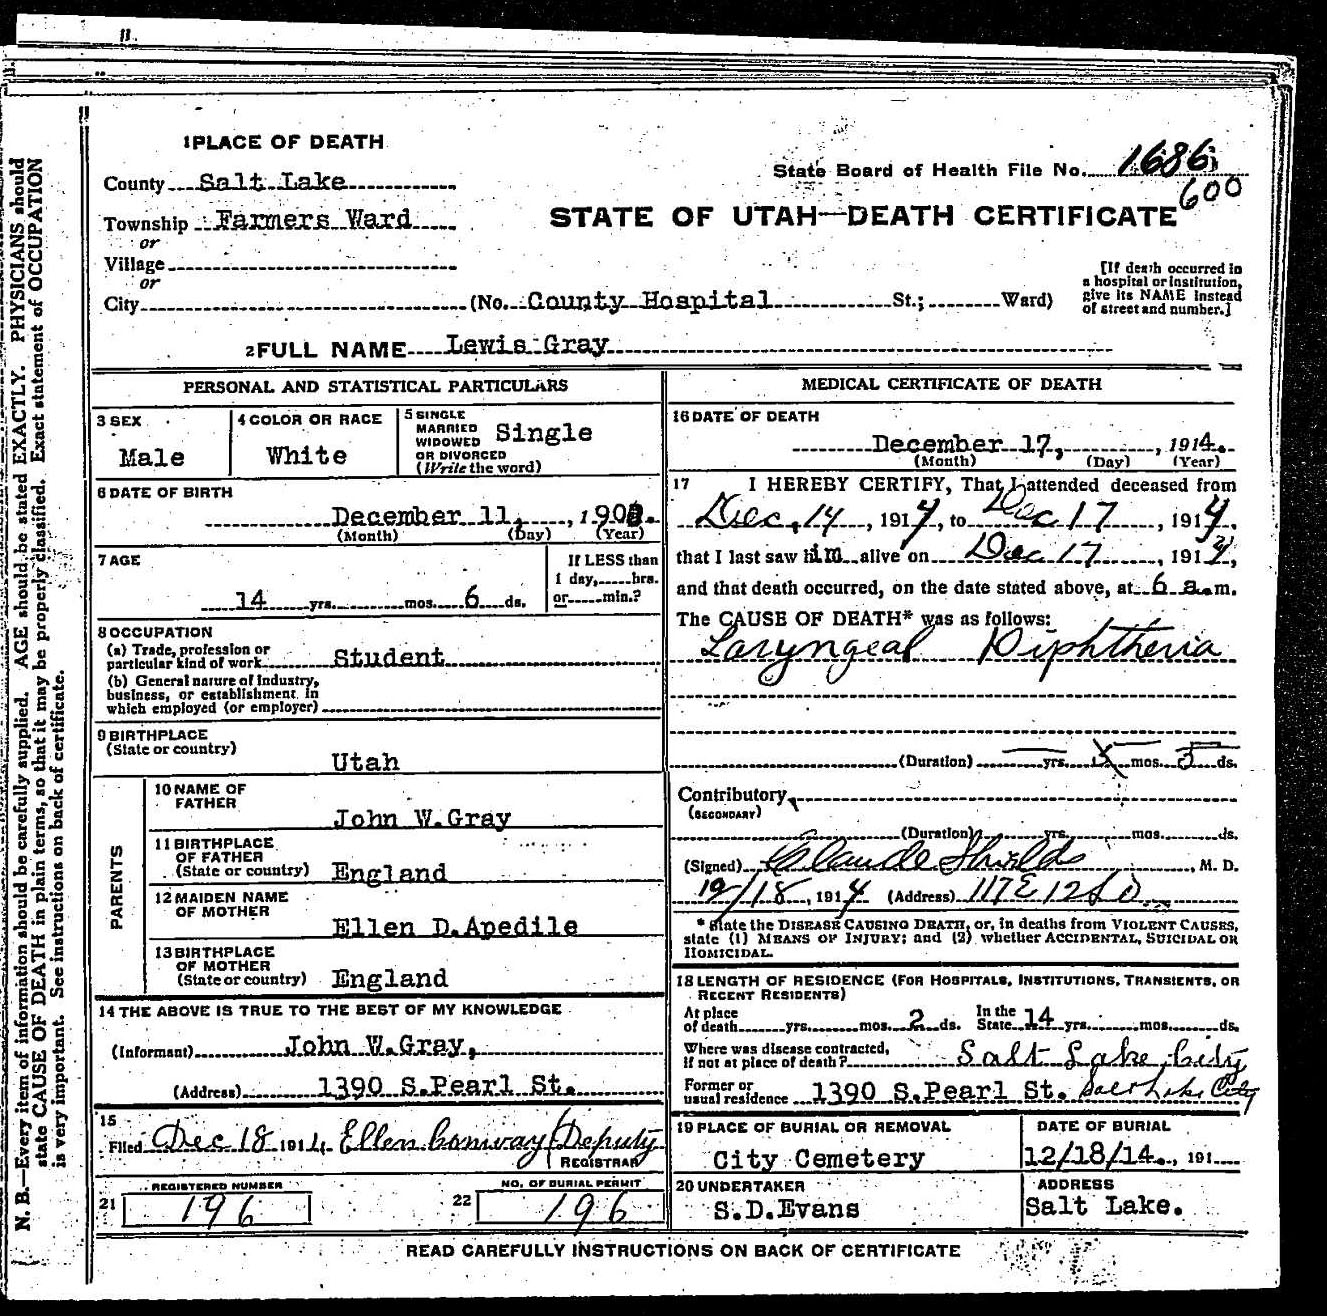 11.
1 PLACE OF DEATH
County Salt Lake
State Board of Health File No. 1686
600
Township Farmers Ward
STATE OF UTAH—DEATH CERTIFICATE
or
Village
or
City (No. County Hospital St.; Ward)
[If death occurred in
a hospital or institution,
give its NAME instead
of street and number.]
2 FULL NAME Lewis Gray
PERSONAL AND STATISTICAL PARTICULARS
3 SEX
Male
4 COLOR OR RACE
White
5 SINGLE
MARRIED
WIDOWED
OR DIVORCED
(Write the word)
Single
6 DATE OF BIRTH
December 11, , 190
(Month) (Day) (Year)
7 AGE
14 yrs. mos. 6 ds.
If LESS than
1 day, hrs.
or min.?
8 OCCUPATION
(a) Trade, profession or
particular kind of work Student
(b) General nature of industry,
business, or establishment in
which employed (or employer)
9 BIRTHPLACE
(State or country)
Utah
PARENTS
10 NAME OF
FATHER
John W.Gray
11 BIRTHPLACE
OF FATHER
(State or country) England
12 MAIDEN NAME
OF MOTHER
Ellen D.Apedile
13 BIRTHPLACE
OF MOTHER
(State or country) England
14 THE ABOVE IS TRUE TO THE BEST OF MY KNOWLEDGE
(Informant) John W.Gray,
(Address) 1390 S.Pearl St.
15
Filed Dec 18 1914 Ellen Conway (Deputy
REGISTRAR
REGISTERED NUMBER
21 196
NO. OF BURIAL PERMIT
22 196
MEDICAL CERTIFICATE OF DEATH
16 DATE OF DEATH
December 17, , 1914.
(Month) (Day) (Year)
17 I HEREBY CERTIFY, That I attended deceased from
Dec. 14, 1914, to Dec 17, 1914,
that I last saw him alive on Dec 17, 1914,
and that death occurred, on the date stated above, at 6 a.m.
The CAUSE OF DEATH* was as follows:
Laryngeal Diphtheria
(Duration) yrs. mos. 5 ds.
Contributory
(SECONDARY)
(Duration) yrs. mos. ds.
(Signed) Claude Shields, M. D.
12/18, 1914 (Address) 117 E 12 So
* State the DISEASE CAUSING DEATH, or, in deaths from VIOLENT CAUSES,
state (1) MEANS OF INJURY; and (2) whether ACCIDENTAL, SUICIDAL OR
HOMICIDAL.
18 LENGTH OF RESIDENCE (FOR HOSPITALS, INSTITUTIONS, TRANSIENTS, OR
RECENT RESIDENTS)
At place
of death yrs. mos. 2 ds.
In the
State 14 yrs. mos. ds.
Where was disease contracted,
if not at place of death? Salt Lake City
Former or
usual residence 1390 S.Pearl St. Salt Lake City
19 PLACE OF BURIAL OR REMOVAL
City Cemetery
DATE OF BURIAL
12/18/14., 191
20 UNDERTAKER
S.D.Evans
ADDRESS
Salt Lake.
READ CAREFULLY INSTRUCTIONS ON BACK OF CERTIFICATE
N. B.—Every item of information should be carefully supplied. AGE should be stated EXACTLY. PHYSICIANS should
state CAUSE OF DEATH in plain terms, so that it may be properly classified. Exact statement of OCCUPATION
is very important. See instructions on back of certificate.